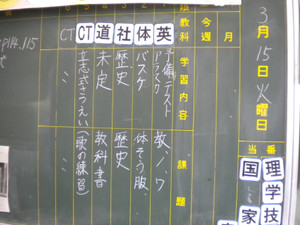 3月15日火曜日
当番
理学技
国
家
月
今週
教科
学習内容
課題
英
準備テスト
教、ノ、ワ
体
バスケ
体そう服、
社
歴史
歴史
道
未定
教科書
CT
立志式さつえい
(歌の練習)
CT
〃
〃
P114.115